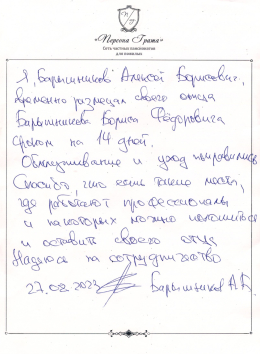 «Персона Грата»
Сеть частных пансионатов
для пожилых
Я, Барышников Алексей Борисович,
временно размещал своего отца
Барышникова Бориса Фёдоровича
сроком на 14 дней.
Обслуживание и уход понравились
Спасибо, что есть такие места,
где работают профессионалы
и на которых можно положиться
и оставить своего отца
Надеюсь на сотрудничество
27.08.2023 Барышников А.Б.